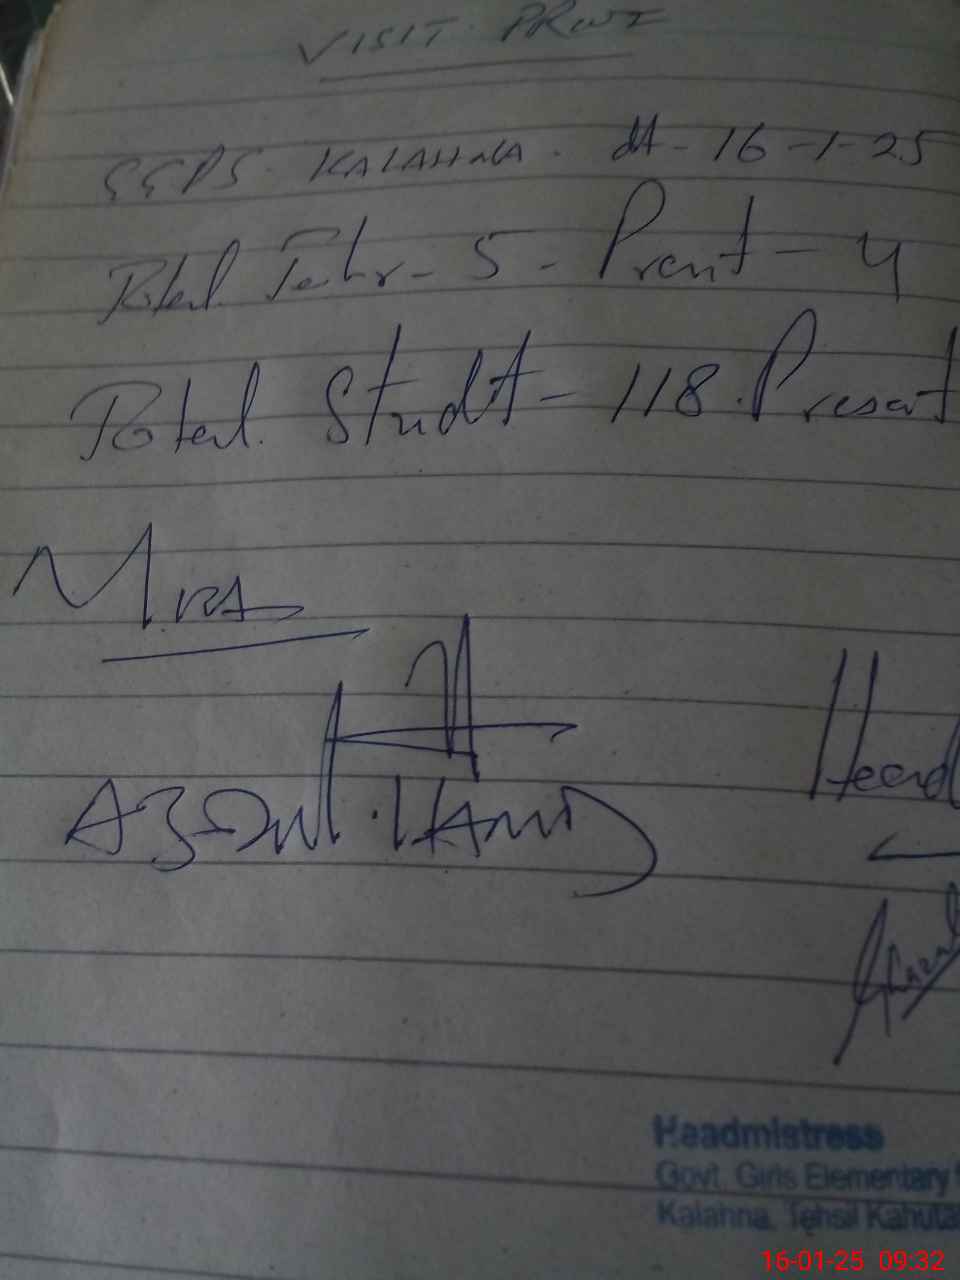 VISIT PROOF
GGPS. KALAHNA. dt - 16-1-25
Total Tehr - 5 - Prent - 4
Total Studt - 118. Present
MEA
Head
Headmistress
Govt. Girls Elementary
Kalahna, Tehsil Kahuta
16-01-25 09:32